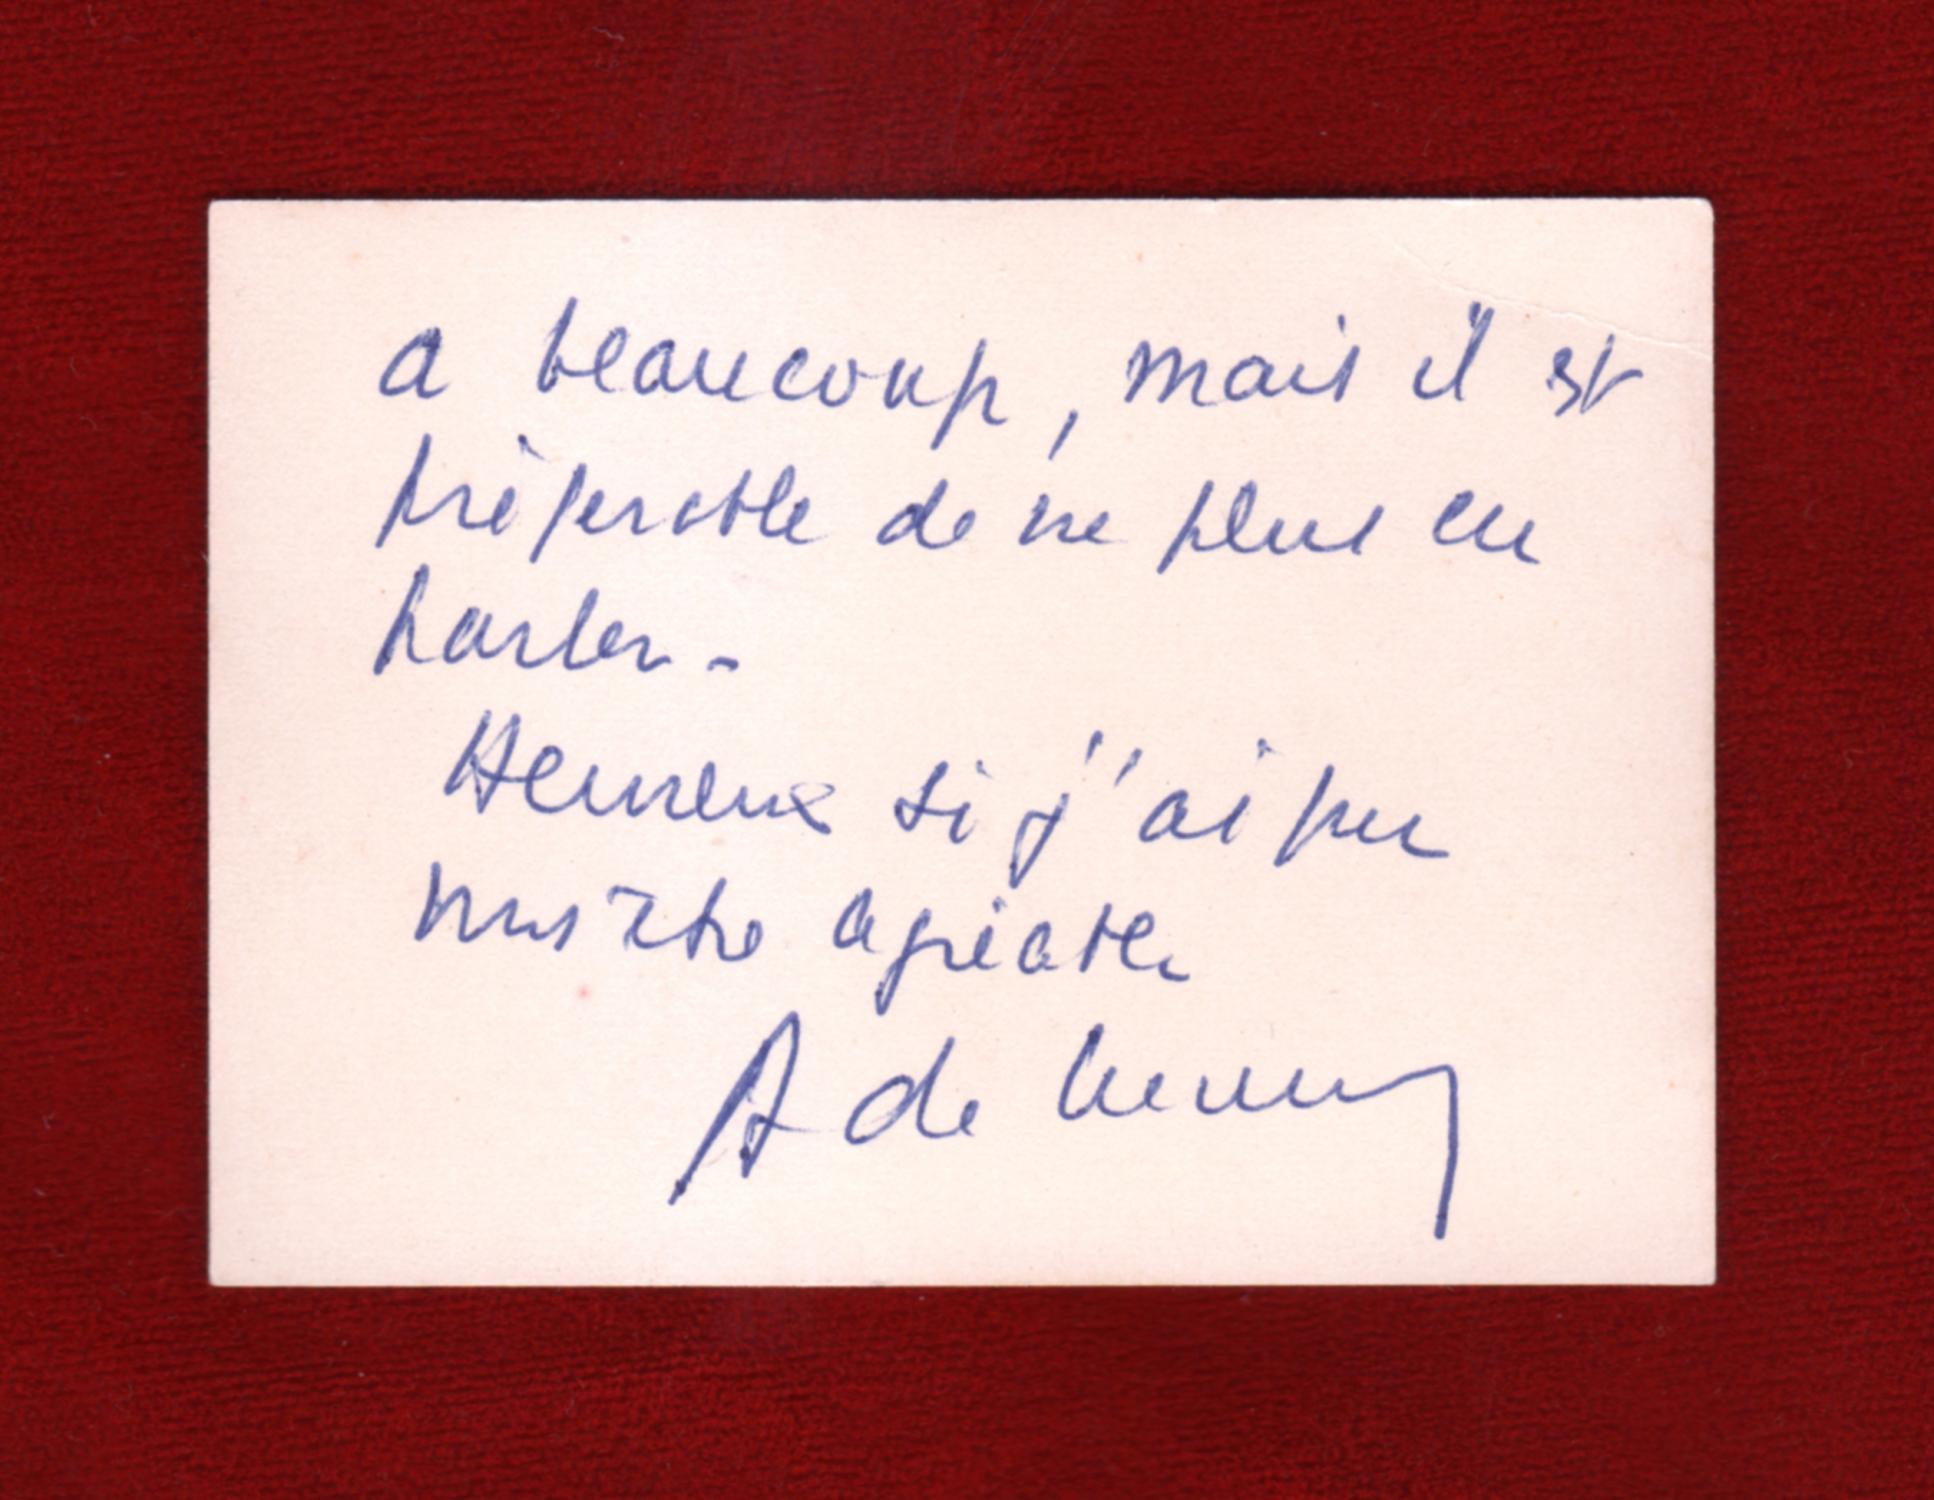 a beaucoup, mais il est
préférable de ne plus en
parler -
Heureux si j'ai pu
vous être agréable
A de